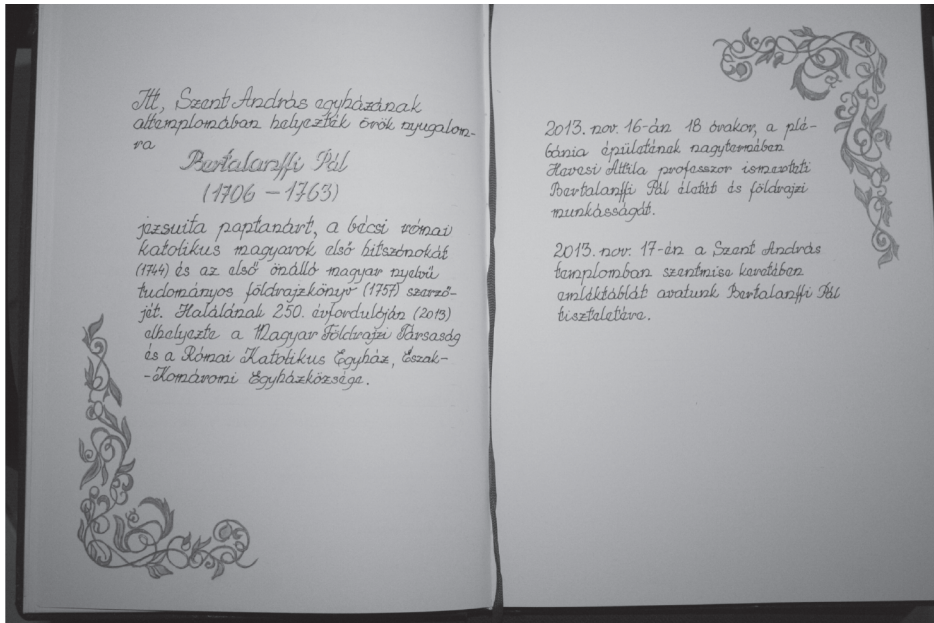 Itt, Szent András egyházának
altemplomában helyezték örök nyugalom-
ra
Bertalanffi Pál
(1706 – 1763)
jezsuita paptanárt, a bécsi római
katolikus magyarok első hitszónokát
(1744) és az első önálló magyar nyelvű
tudományos földrajzkönyv (1757) szerző-
jét. Halálának 250. évfordulóján (2013)
elhelyezte a Magyar Földrajzi Társaság
és a Római Katolikus Egyház, Észak-
-Komáromi Egyházközsége.
2013. nov. 16-án 18 órakor, a plé-
bánia épületének nagytermében
Hevesi Attila professzor ismerteti
Bertalanffi Pál életét és földrajzi
munkásságát.
2013. nov. 17-én a Szent András
templomban szentmise keretében
emléktáblát avatunk Bertalanffi Pál
tiszteletére.